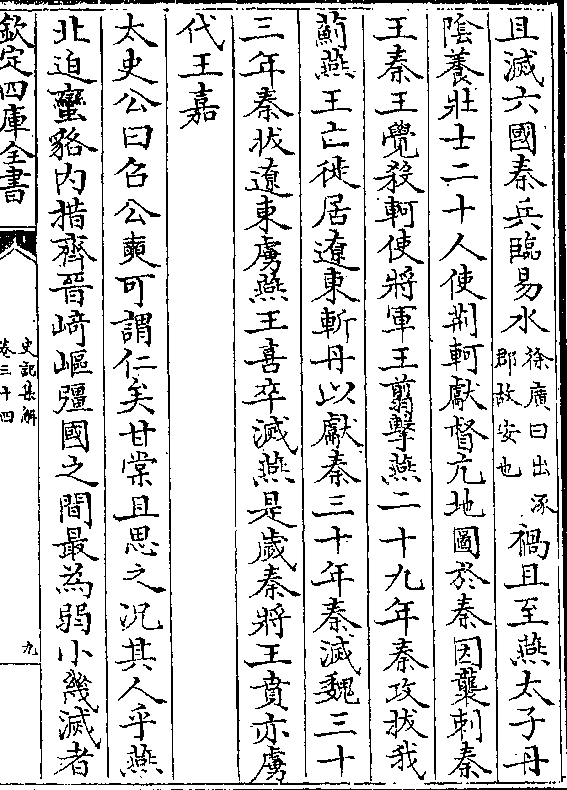 且滅六國秦兵臨易水徐廣曰出涿郡故安也禍且至燕太子丹
陰養壯士二十人使荆軻獻督亢地圖於秦因襲刺秦
王秦王覺殺軻使將軍王翦擊燕二十九年秦攻拔我
薊燕王亡徙居遼東斬丹以獻秦三十年秦滅魏三十
三年秦拔遼東虜燕王喜卒滅燕是歲秦將王賁亦虜
代王嘉
太史公曰召公奭可謂仁矣甘棠且思之况其人乎燕
北迫蠻貉内措齊晉崎嶇彊國之間最為弱小幾滅者
欽定四庫全書
史記集解
卷三十四
九